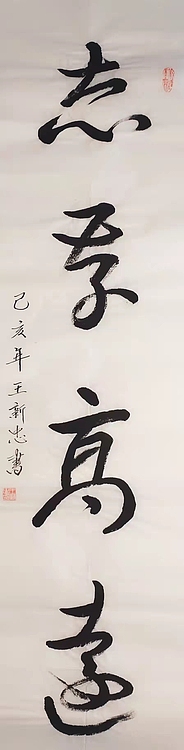 志存高遠
己亥年王新忠書